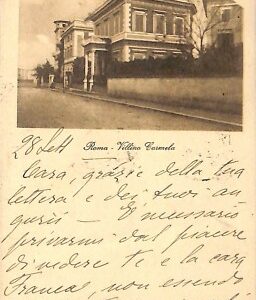 Roma - Villino Carmela
28 Sett
Cara, grazie della tua
lettera e dei tuoi au-
guri - È necessario
privarmi del piacere
di vedere te e la cara
Franca, non essendo